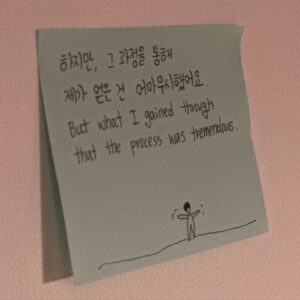 하지만, 그 과정을 통해
제가 얻은 건 어마무시했어요.
But what I gained through
that the process was tremendous.